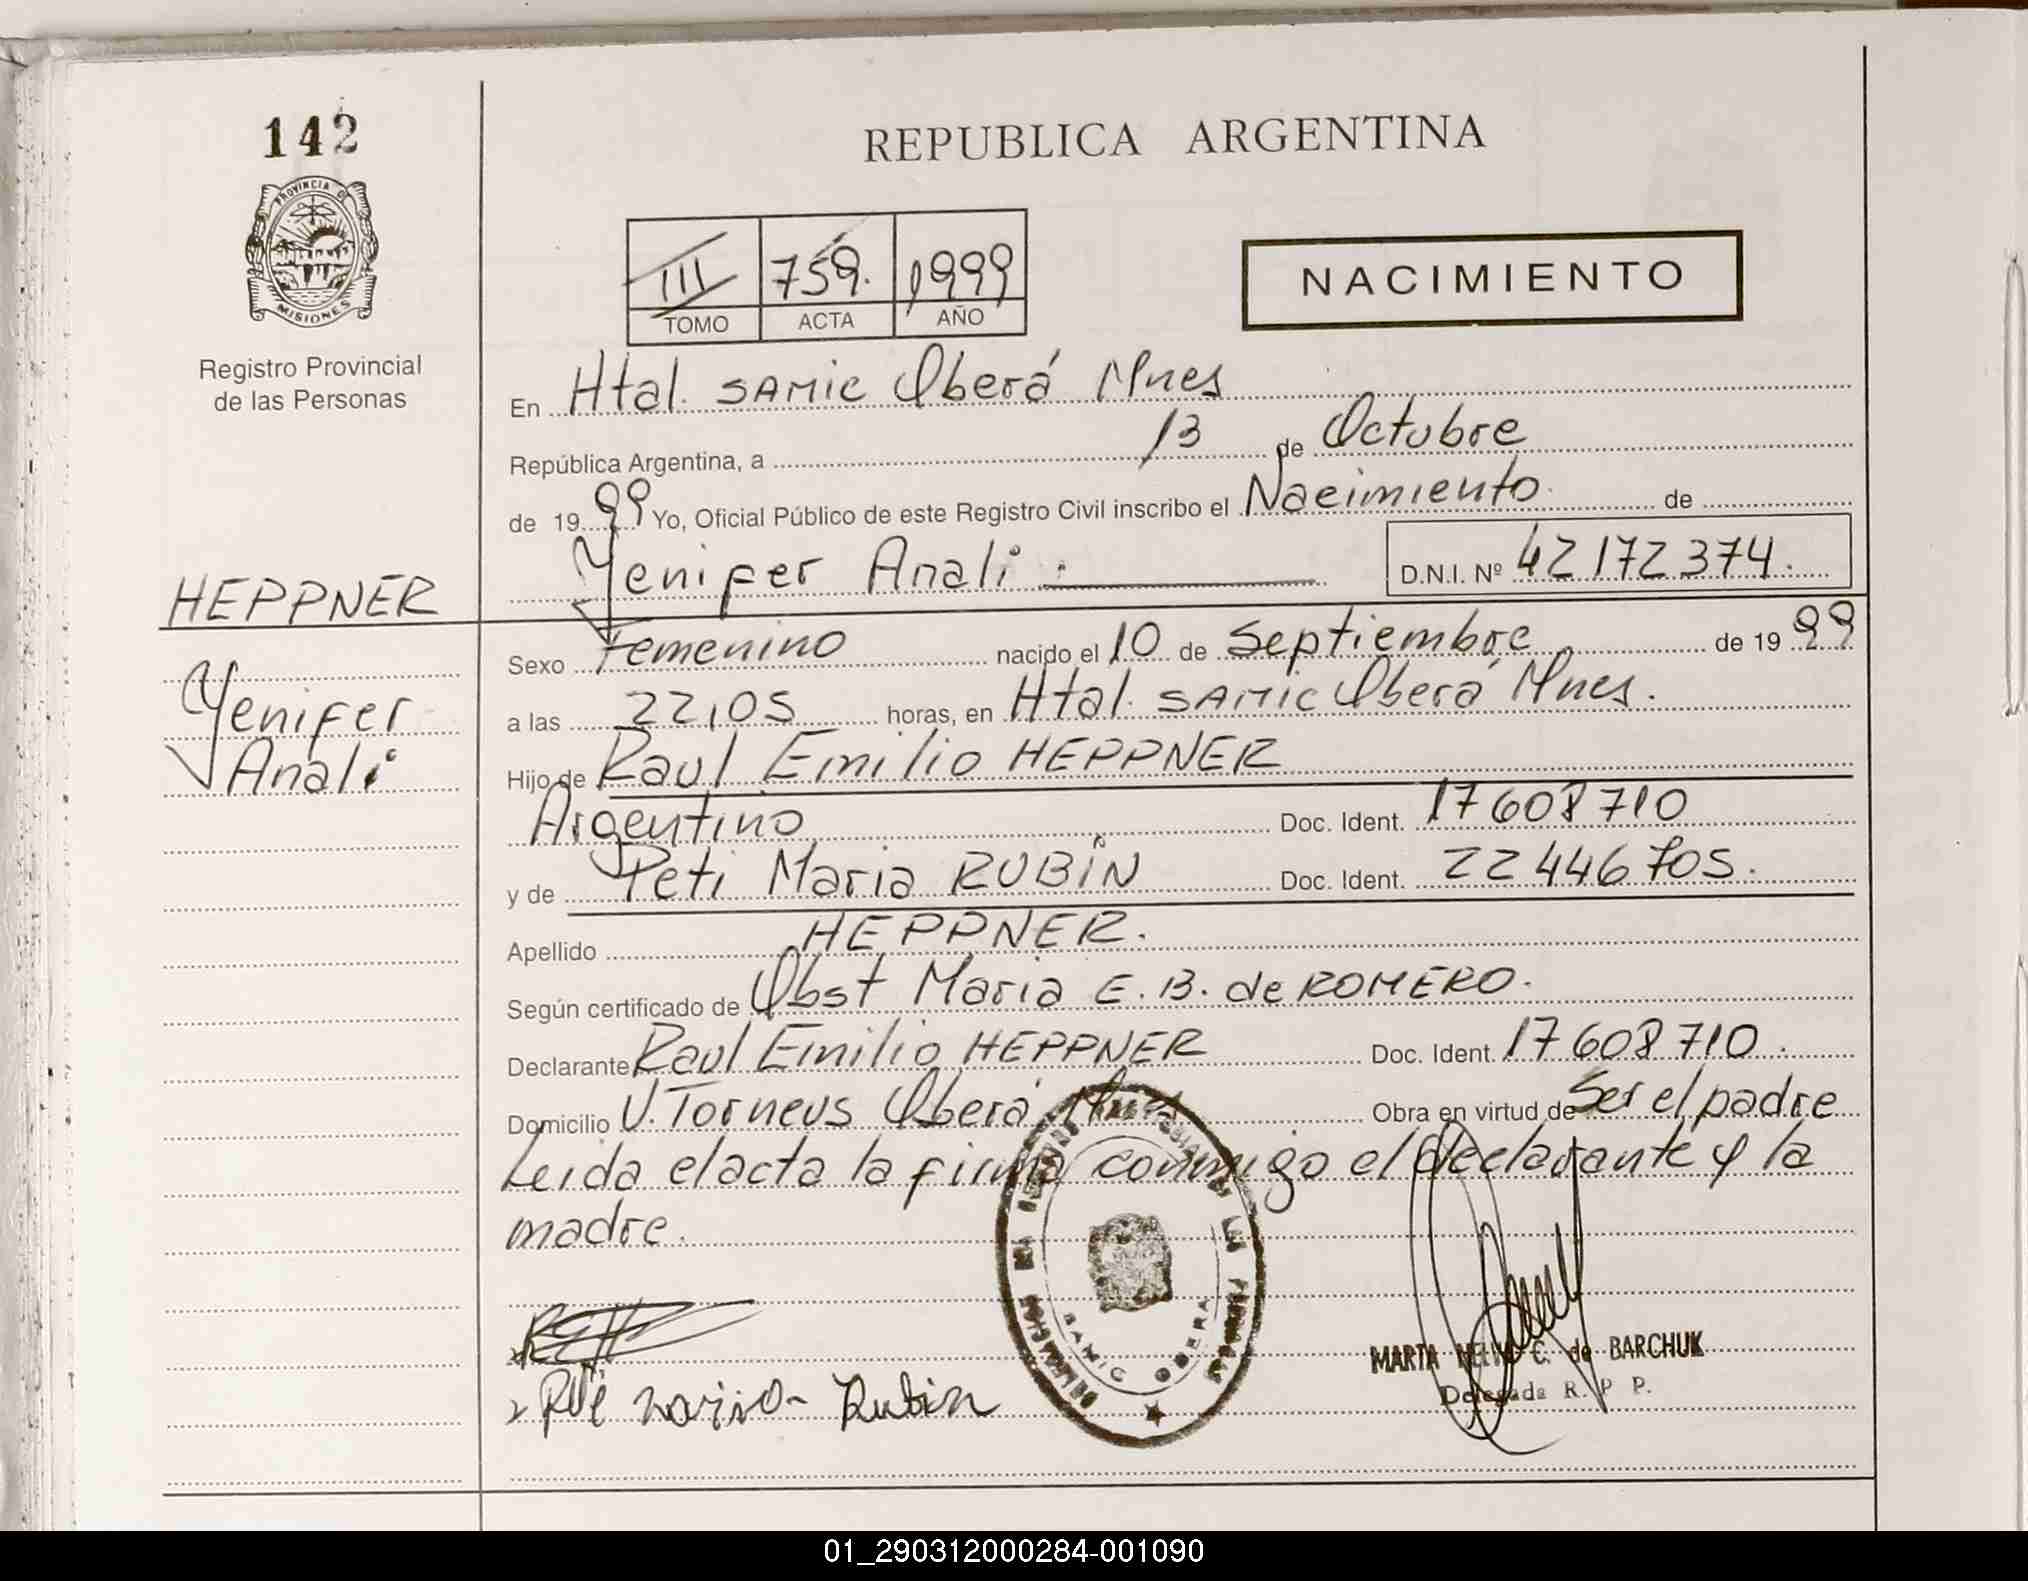 142
PROVINCIA DE
MISIONES
Registro Provincial
de las Personas
HEPPNER
Yenifer
Anali
REPUBLICA ARGENTINA
III 759. 1999
TOMO ACTA AÑO
NACIMIENTO
En Htal. SAMIC Oberá Mnes
República Argentina, a 13 de Octubre
de 1999 Yo, Oficial Público de este Registro Civil inscribo el Nacimiento. de
Yenifer Anali. D.N.I. Nº 42172374.
Sexo Femenino nacido el 10 de Septiembre de 1999
a las 22,05 horas, en Htal. SAMIC Oberá Mnes.
Hijo de Raul Emilio HEPPNER
Argentino Doc. Ident. 17608710
y de Peti Maria RUBIN Doc. Ident. 22446705.
Apellido HEPPNER.
Según certificado de Obst Maria E. B. de ROMERO.
Declarante Raul Emilio HEPPNER Doc. Ident. 17608710.
Domicilio V. Torneus Oberá Mnes Obra en virtud de Ser el padre
Leida el acta la firma conmigo el declarante y la
madre.
SAMIC OBERA
MARTA C. de BARCHUK
Delegada R. P P.
Rubin
01_290312000284-001090